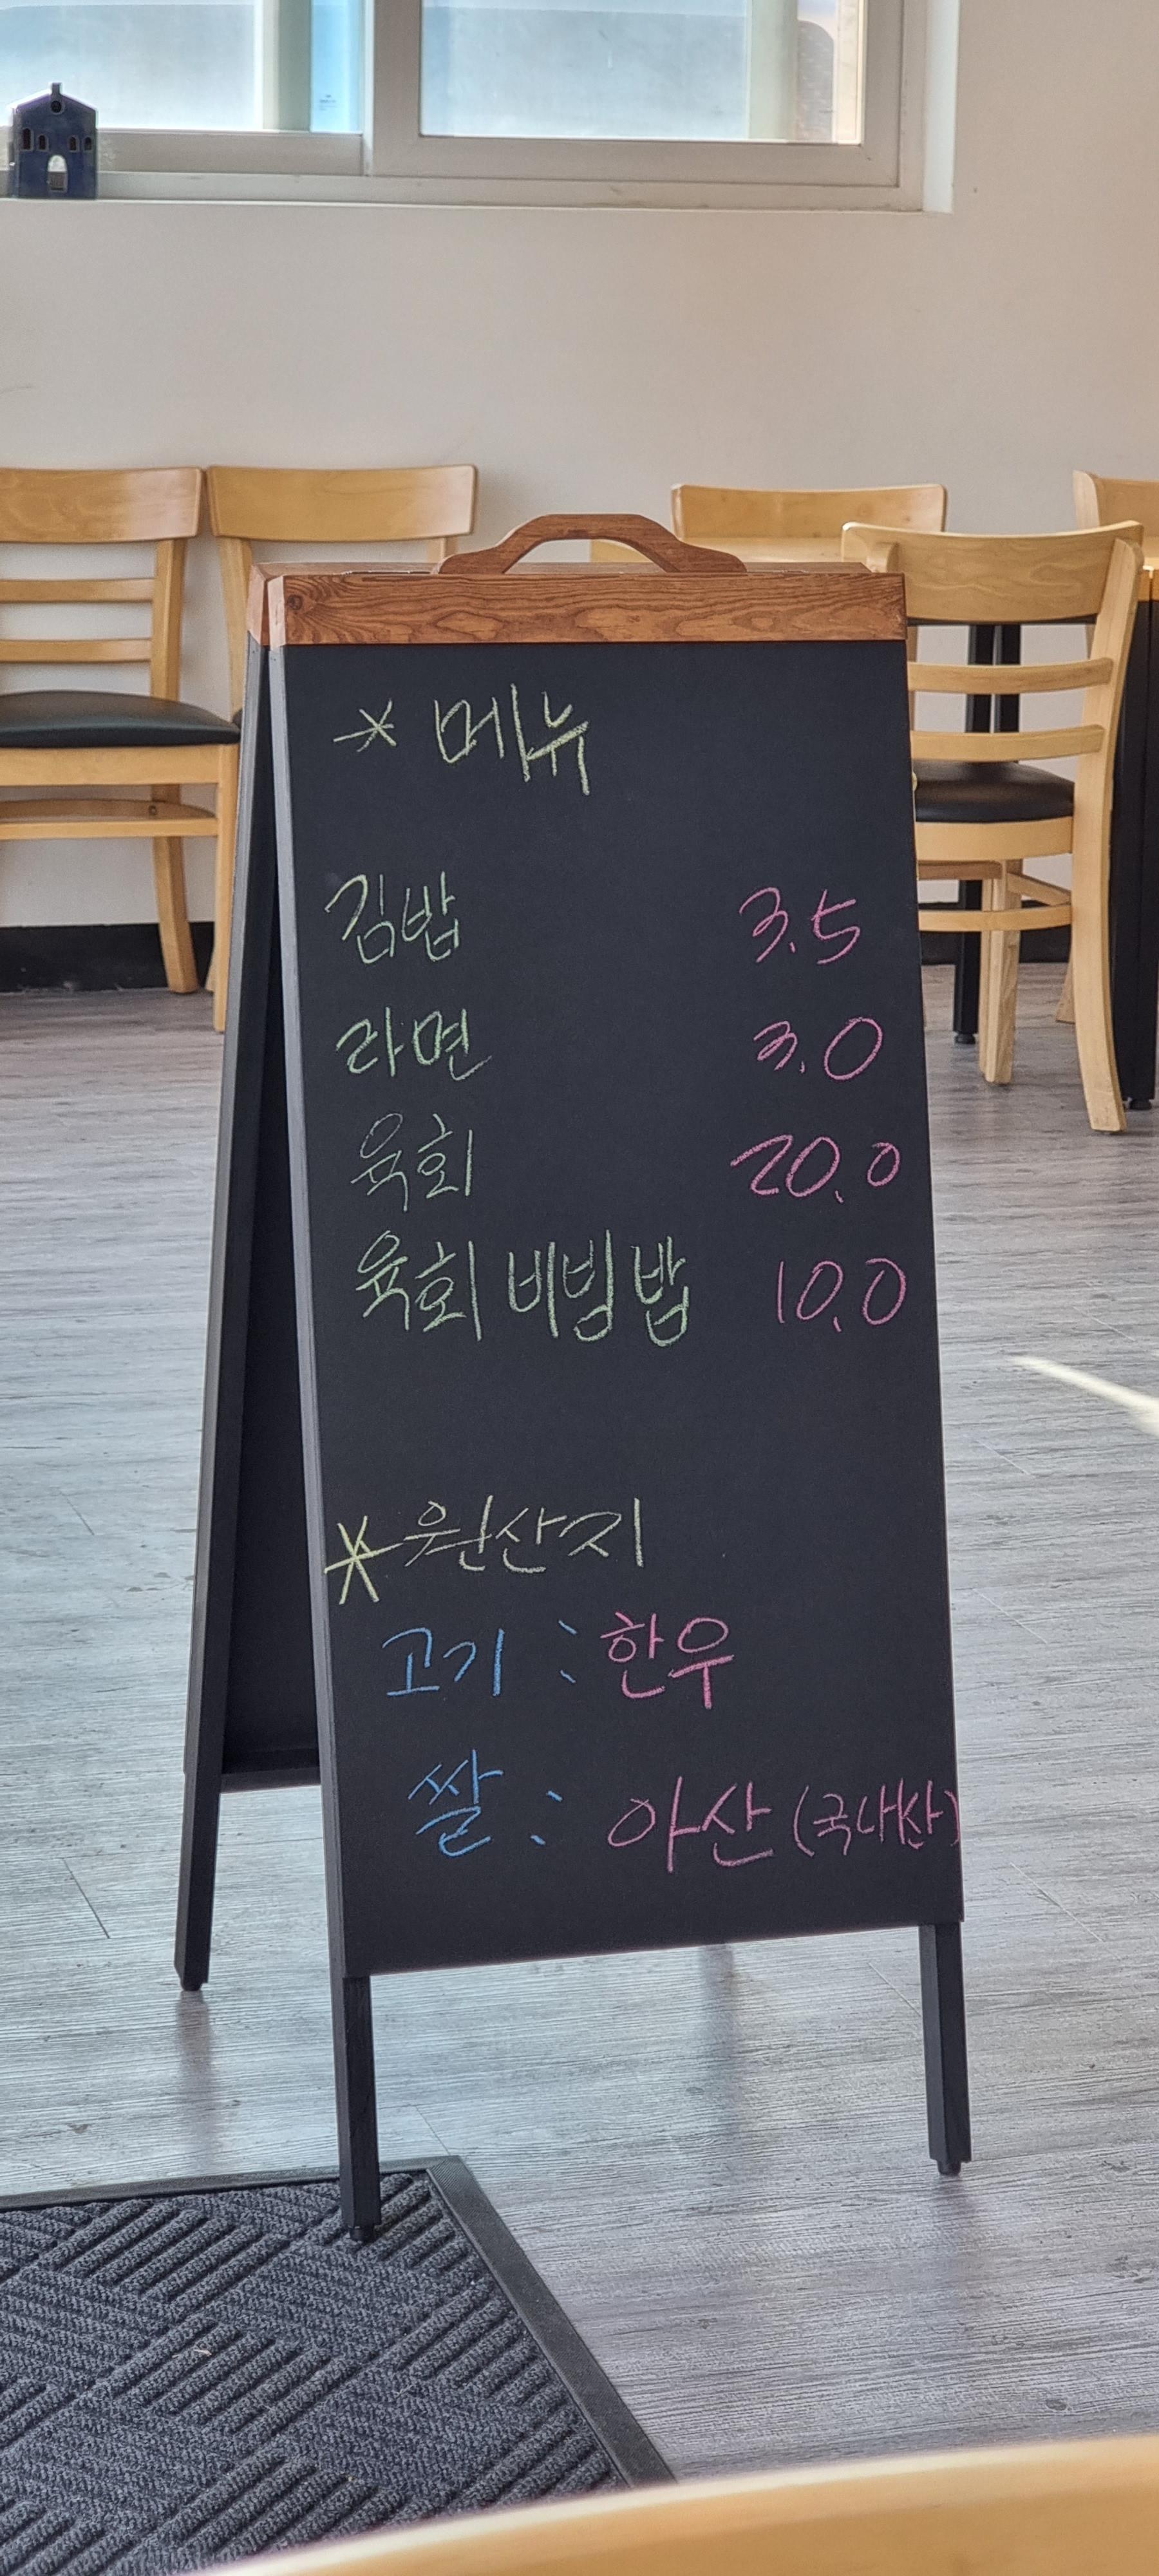 * 메뉴
김밥 3.5
라면 3.0
육회 20.0
육회비빔밥 10.0
* 원산지
고기 : 한우
쌀 : 아산 (국내산)